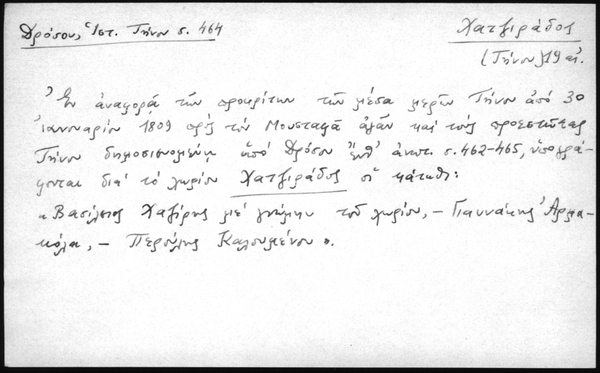 Δρόσου, Ἱστ. Τήνου σ. 464
Χατζιράδος
(Τήνου) 19 αἰ.
Ἐν ἀναφορᾷ τῶν προκρίτων τῶν μέσα μερῶν Τήνου ἀπό 30
Ἰαννουαρίου 1809 πρός τόν Μουσταφᾶ ἀγᾶν καί τούς προεστῶτας
Τήνου δημοσιευομένῃ ὑπό Δρόσου ἔνθ' ἀνωτ. σ. 462-465, ὑπογρά-
φονται διά τό χωρίον Χατζιράδος οἱ κάτωθι:
« Βασίλειος Χαζίρης μέ γνώμην τοῦ χωρίου, – Γιαννάκης Ἀρμα-
κόλα, – Περούλης Καλουμένου ».